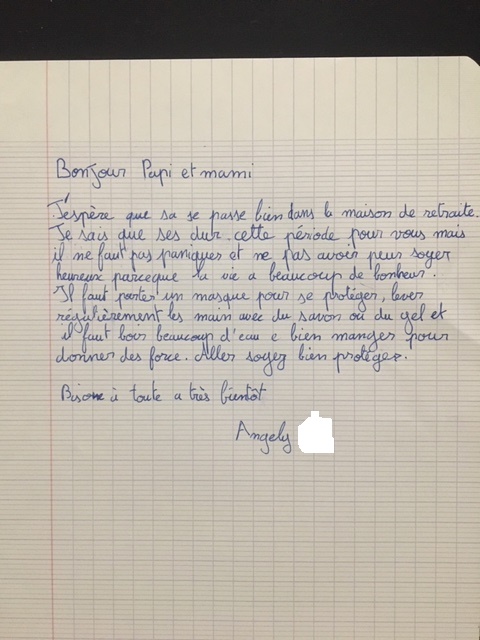 Bonjour Papi et mami
J'éspère que sa se passe bien dans la maison de retraite.
Je sais que ses dur cette période pour vous mais
il ne faut pas paniquer et ne pas avoir peur soyer
heureux parceque la vie a beaucoup de bonheur.
Il faut porter un masque pour se protéger, laver
régulièrement les main avec du savon ou du gel et
il faut boir beaucoup d'eau e bien manger pour
donner des force. Aller soyez bien protéger.
Bisous à toute a très bientôt
Angely